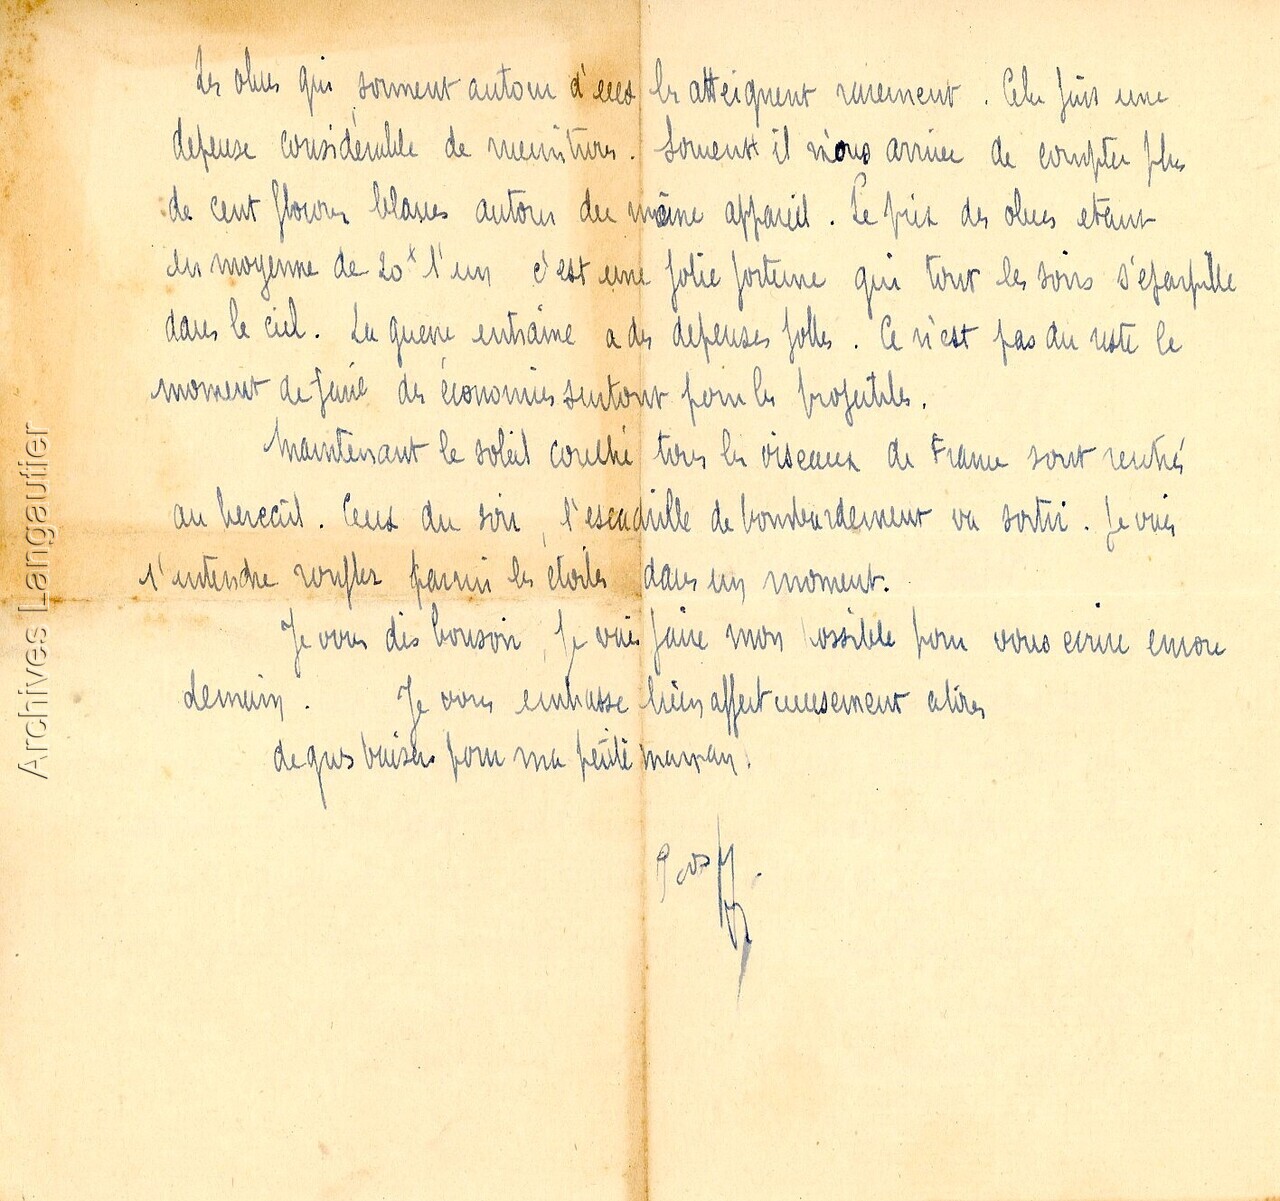 Les obus qui sonnent autour d'eux les atteignent rarement. Cela fait une
depense considérable de munitions. Souvent il nous arrive de compter plus
de cent flocons blancs autour du même appareil. Le prix des obus etant
en moyenne de 20 l'un c'est une jolie fortune qui tout les soirs s'eparpille
dans le ciel. La guerre entraîne a des depenses folles. Ce n'est pas du reste le
moment de faire des économies surtout pour les projectiles.
Maintenant le soleil couché tous les oiseaux de France sont rentrés
au bercail. Ceux du soir, l'escadrille de bombardement va sortir. Je vais
l'entendre ronfler parmi les étoiles dans un moment.
Je vous dis bonsoir, je vais faire mon possible pour vous ecrire encore
demain. Je vous embrasse bien affectueusement
de gros baisers pour ma petite maman.
Archives Langautier